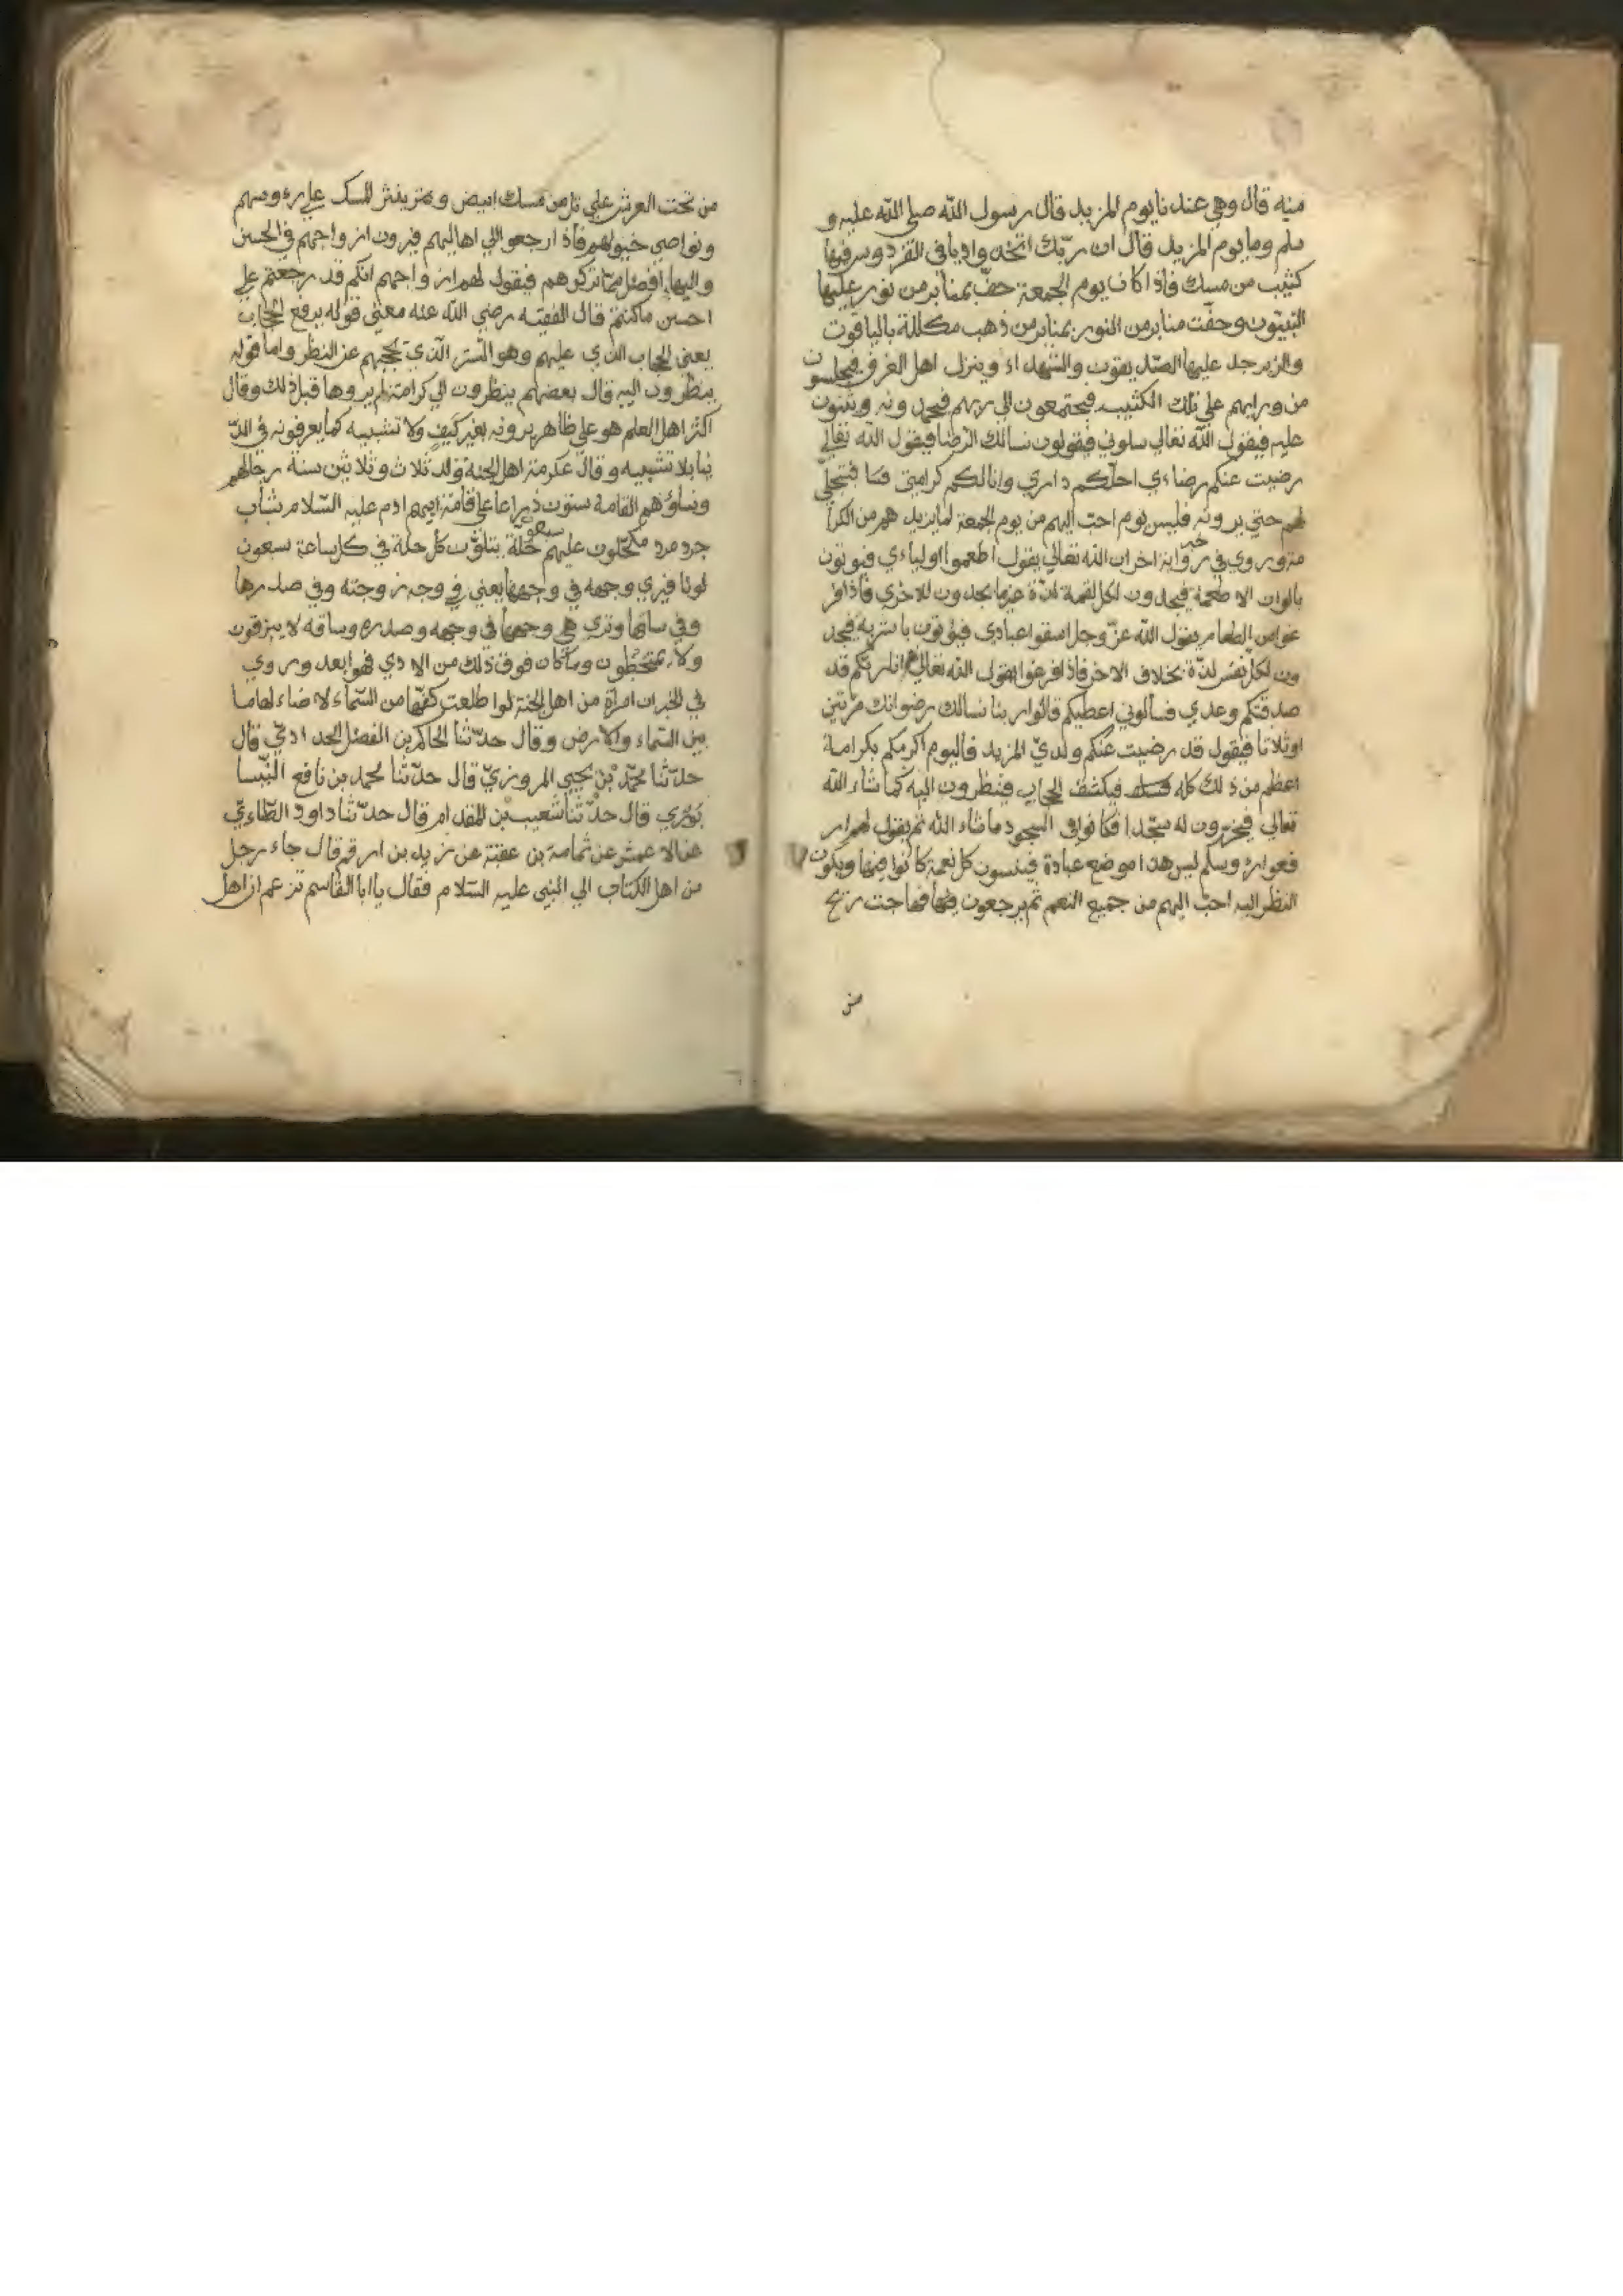 منه قال وهي عندنا يوم المزيد قال رسول الله صلي الله عليه و
سلم وما يوم المزيد قال ان ربّك اتخذ واديا في الفردوس فيها
كثيب من مسك فاذا كان يوم الجمعة حفّ بمنابر من نور عليها
النبيّون وحفّت منابر من النور بمنابر من ذهب مكللة بالياقوت
والزبرجد عليها الصدّيقون والشهداء وينزل اهل الغرف فيجلسون
من ورايهم علي تلك الكثيب فيجتمعون الي ربهم فيحمدونه ويثنون
عليه فيقول الله تعالي سلوني فيقولون نسالك الرضا فيقول الله تعالي
رضيت عنكم رضاءي احلّكم داري وانالكم كرامتي فيتجلّي
لهم حتي يرونه فليس يوم احبّ اليهم من يوم الجمعة لما يزيدهم من الكرا
مة وروي في خبر اخر ان الله تعالي يقول اطعموا اولياءي فيوتون
بالوان الاطعمة فيجدون لكل لقمة لذّة غير ما يجدون للاخري فاذا فر
غوا من الطعام يقول الله عزّ وجل اسقوا عبادي فيؤتون باشربة فيجد
ون لكل نفس لذّة بخلاف الاخر فاذا فرغوا يقول الله تعالي لهم انا ربّكم قد
صدقتكم وعدي فسالوني اعطيكم قالوا ربنا نسالك رضوانك مرّتين
او ثلاثا فيقول قد رضيت عنكم ولديّ المزيد فاليوم اكرمكم بكرامة
اعظم من ذلك كله فيكشف الحجاب فينظرون اليه كما شاء الله
تعالي فيخرّون له سجّدا فكانوا في السجود ما شاء الله ثم يقول لهم ار
فعوا رءوسكم ليس هذا موضع عبادة فينسون كل نعمة كانوا فيها ويكون
النظر اليه احبّ اليهم من جميع النعم ثم يرجعون فهاجت ريح
من
من تحت العرش علي تل من مسك ابيض وينثر المسك علي رءوسهم
ونواصي خيولهم فاذا رجعوا الي اهاليهم فيرون ازواجهم في الحسن
والبهاء افضل ممّا تركوهم فيقول لهم ازواجهم انكم قد رجعتم علي
احسن ما كنتم قال الفقيه رضي الله عنه معني قوله يرفع الحجاب
يعني الحجاب الذي عليهم وهو الستر الّذي يحجبهم عن النظر واما قوله
ينظرون اليه قال بعضهم ينظرون الي كرامة لم يروها قبل ذلك وقال
اكثر اهل العلم هو علي ظاهره يرونه بغير كيف ولا تشبيه كما يعرفونه في الدّ
نيا بلا تشبيه وقال عكرمة اهل الجنة ولد ثلاث وثلاثين سنة رجالهم
ونساؤهم القامة ستون ذراعا علي قامة ابيهم ادم عليه السّلام شباب
جرد مرد مكحّلون عليهم سبعون حلّة يتلوّن كل حلة في كل ساعة سبعون
لونا فيري وجهه في وجهها يعني في وجه زوجته وفي صدرها
وفي ساقها وتري هي وجهها في وجهه وصدره وساقه لا يبزقون
ولا يمتخطون وما كان فوق ذلك من الاذي فهو ابعد وروي
في الخبر ان امراة من اهل الجنة لو اطلعت كفّها من السّماء لاضاء لها ما
بين السّماء والارض وقال حدّثنا الحاكم بن الفضل الحدادي قال
حدّثنا محمّد بن يحيي المروزيّ قال حدّثنا محمد بن نافع النّيسا
بوري قال حدّثنا شعيب بن المقدام قال حدّثنا داود الطّاءيّ
عن الاعمش عن ثمامة بن عقبة عن زيد بن ارقم قال جاء رجل
من اهل الكتاب الي النبي عليه السّلام فقال يا ابا القاسم تزعم ان اهل